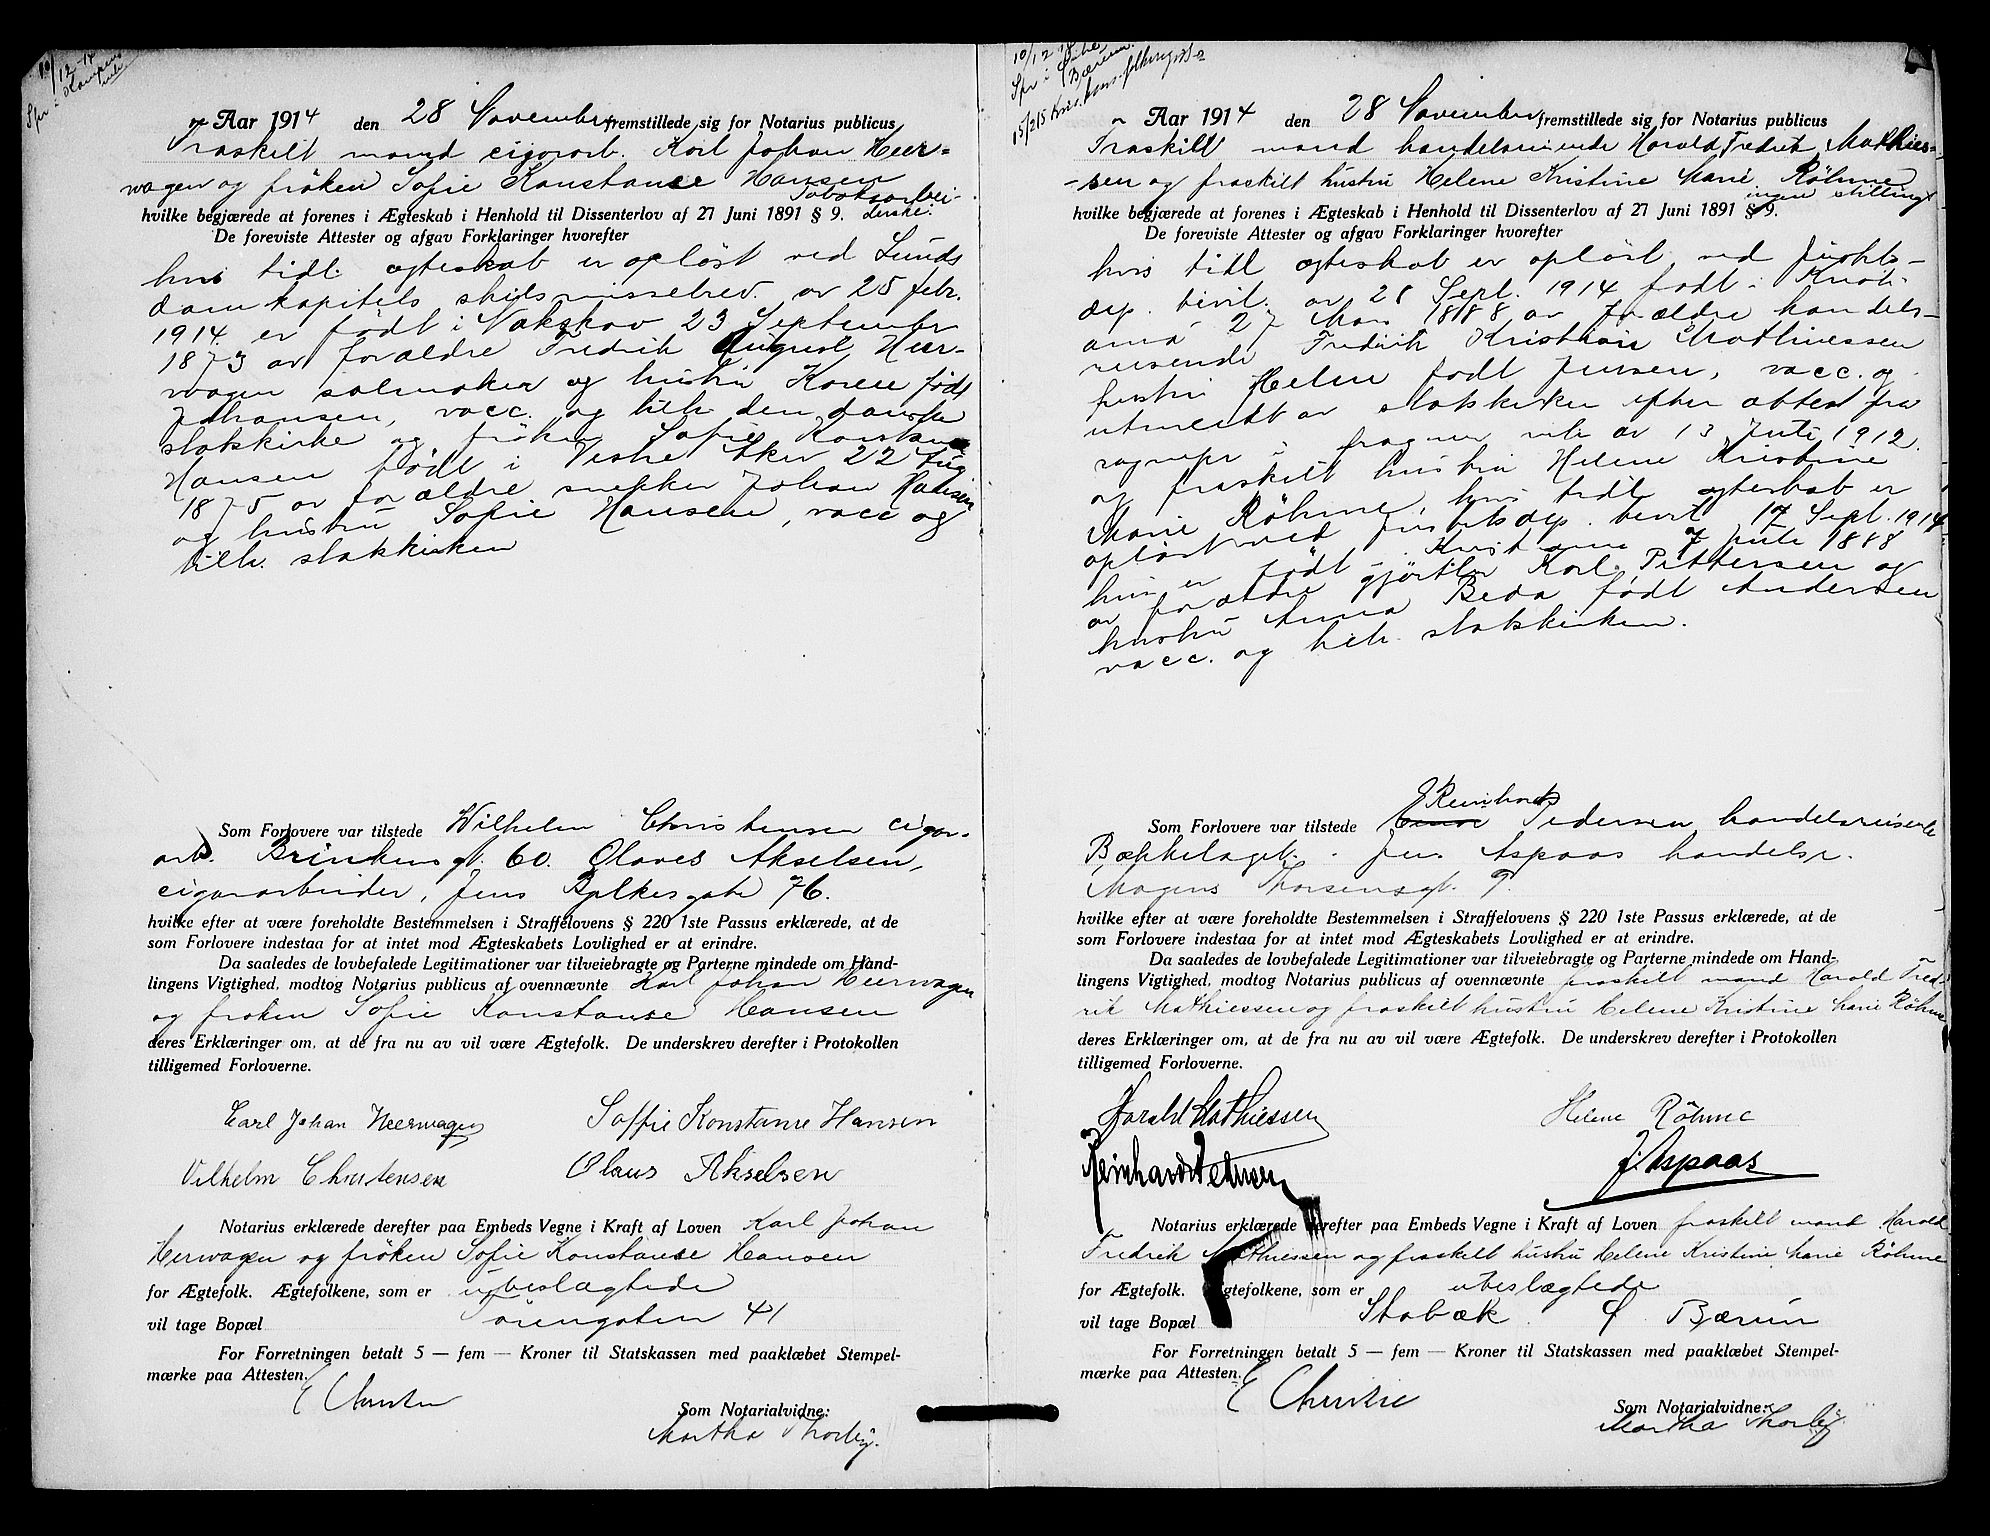 10/12-14
Spr i Kampens
Aar 1914 den 28 November fremstillede sig for Notarius publicus
Fraskilt mand cigararb. Karl Johan Heer-
wagen og frøken Sofie Konstanse Hansen
Tobaksarbei-
hvilke begjærede at forenes i Ægteskab i Henhold til Dissenterlov af 27 Juni 1891 § 9. derske.
De foreviste Attester og afgav Forklaringer hvorefter
hvis tidl. egteskab er opløst ved Lunds
domkapitels skilsmissebrev av 25 febr.
1914 er født i Nakskov 23 September
1873 av forældre Fredrik August Heer-
wagen salmaker og hustru Karen født
Johansen, vacc. og tilh. den danske
statskirke og frøken Sofie Konstanse
Hansen født i Vestre Aker 22 Aug
1875 av forældre snekker Johan Hansen
og hustru Sofie Hansen, vacc og
tilh. statskirken
Som Forlovere var tilstede Wilhelm Christensen cigar-
arb. Brinkens gt. 60. Olaves Akselsen,
cigararbeider, Jens Bjelkesgate 76.
hvilke efter at være foreholdte Bestemmelsen i Straffelovens § 220 1ste Passus erklærede, at de
som Forlovere indestaa for at intet mod Ægteskabets Lovlighed er at erindre.
Da saaledes de lovbefalede Legitimationer var tilveiebragte og Parterne mindede om Hand-
lingens Vigtighed, modtog Notarius publicus af ovennævnte Karl Johan Heerwagen
og frøken Sofie Konstanse Hansen
deres Erklæringer om, at de fra nu av vil være Ægtefolk. De underskrev derefter i Protokollen
tilligemed Forloverne.
Carl Johan Heerwagen Soffie Konstanse Hansen
Vilhelm Christensen Olaus Akselsen
Notarius erklærede derefter paa Embeds Vegne i Kraft af Loven Karl Johan
Heerwagen og frøken Sofie Konstanse Hansen
for Ægtefolk. Ægtefolkene, som er ubeslægtede
vil tage Bopæl Tøiengaten 41
For Forretningen betalt 5 — fem — Kroner til Statskassen med paaklæbet Stempel-
mærke paa Attesten.
E Christie
Som Notarialvidne:
Martha Thorbj.
10/12 14
Spr i
Bærum.
15/2 15 Kra. kom. folkeregister
Aar 1914 den 28 November fremstillede sig for Notarius publicus
Fraskilt mand handelsreisende Harald Fredrik Mathies-
sen og fraskilt hustru Helene Kristine Marie Röhme
ingen stilling
hvilke begjærede at forenes i Ægteskab i Henhold til Dissenterlov af 27 Juni 1891 § 9.
De foreviste Attester og afgav Forklaringer hvorefter
hvis tidl egteskab er opløst ved Justits-
dep. bevil. av 28 Sept. 1914 født i Kristi-
ania 27 Mars 1888 av forældre handels-
reisende Fredrik Kristian Mathiessen
hustru Helene født Jensen, vacc. og
utmeldt av statskirken efter attest fra
sognepr i Fragner mh av 13 Juli 1912.
og fraskilt hustru Helene Kristine
Marie Röhme, hvis tidl egteskab er
opløst ved Justitsdep. bevil 17 Sept. 1914
hun er født i Kristiania 7 Juli 1888
av forældre gjørtler Karl Pettersen og
hustru Anna Beda født Andersen
vacc. og tilh. statskirken.
Reinhardt
Som Forlovere var tilstede Pedersen handelsreisende
Bækkelaget. Jens Aspaas handelsr.
Magnus Thorsensgt. 9.
hvilke efter at være foreholdte Bestemmelsen i Straffelovens § 220 1ste Passus erklærede, at de
som Forlovere indestaa for at intet mod Ægteskabets Lovlighed er at erindre.
Da saaledes de lovbefalede Legitimationer var tilveiebragte og Parterne mindede om Hand-
lingens Vigtighed, modtog Notarius publicus af ovennævnte fraskilt mand Harald Fred-
rik Mathiessen og fraskilt hustru Helene Kristine Marie Röhme
deres Erklæringer om, at de fra nu av vil være Ægtefolk. De underskrev derefter i Protokollen
tilligemed Forloverne.
Harald Mathiessen Helene Röhme
Reinhardt Pedersen J. Aspaas
Notarius erklærede derefter paa Embeds Vegne i Kraft af Loven fraskilt mand Harald
Fredrik Mathiessen og fraskilt hustru Helene Kristine Marie Röhme
for Ægtefolk. Ægtefolkene, som er ubeslægtede
vil tage Bopæl Stabæk i Bærum
For Forretningen betalt 5 — fem — Kroner til Statskassen med paaklæbet Stempel-
mærke paa Attesten.
E Christie
Som Notarialvidne:
Martha Thorbj.